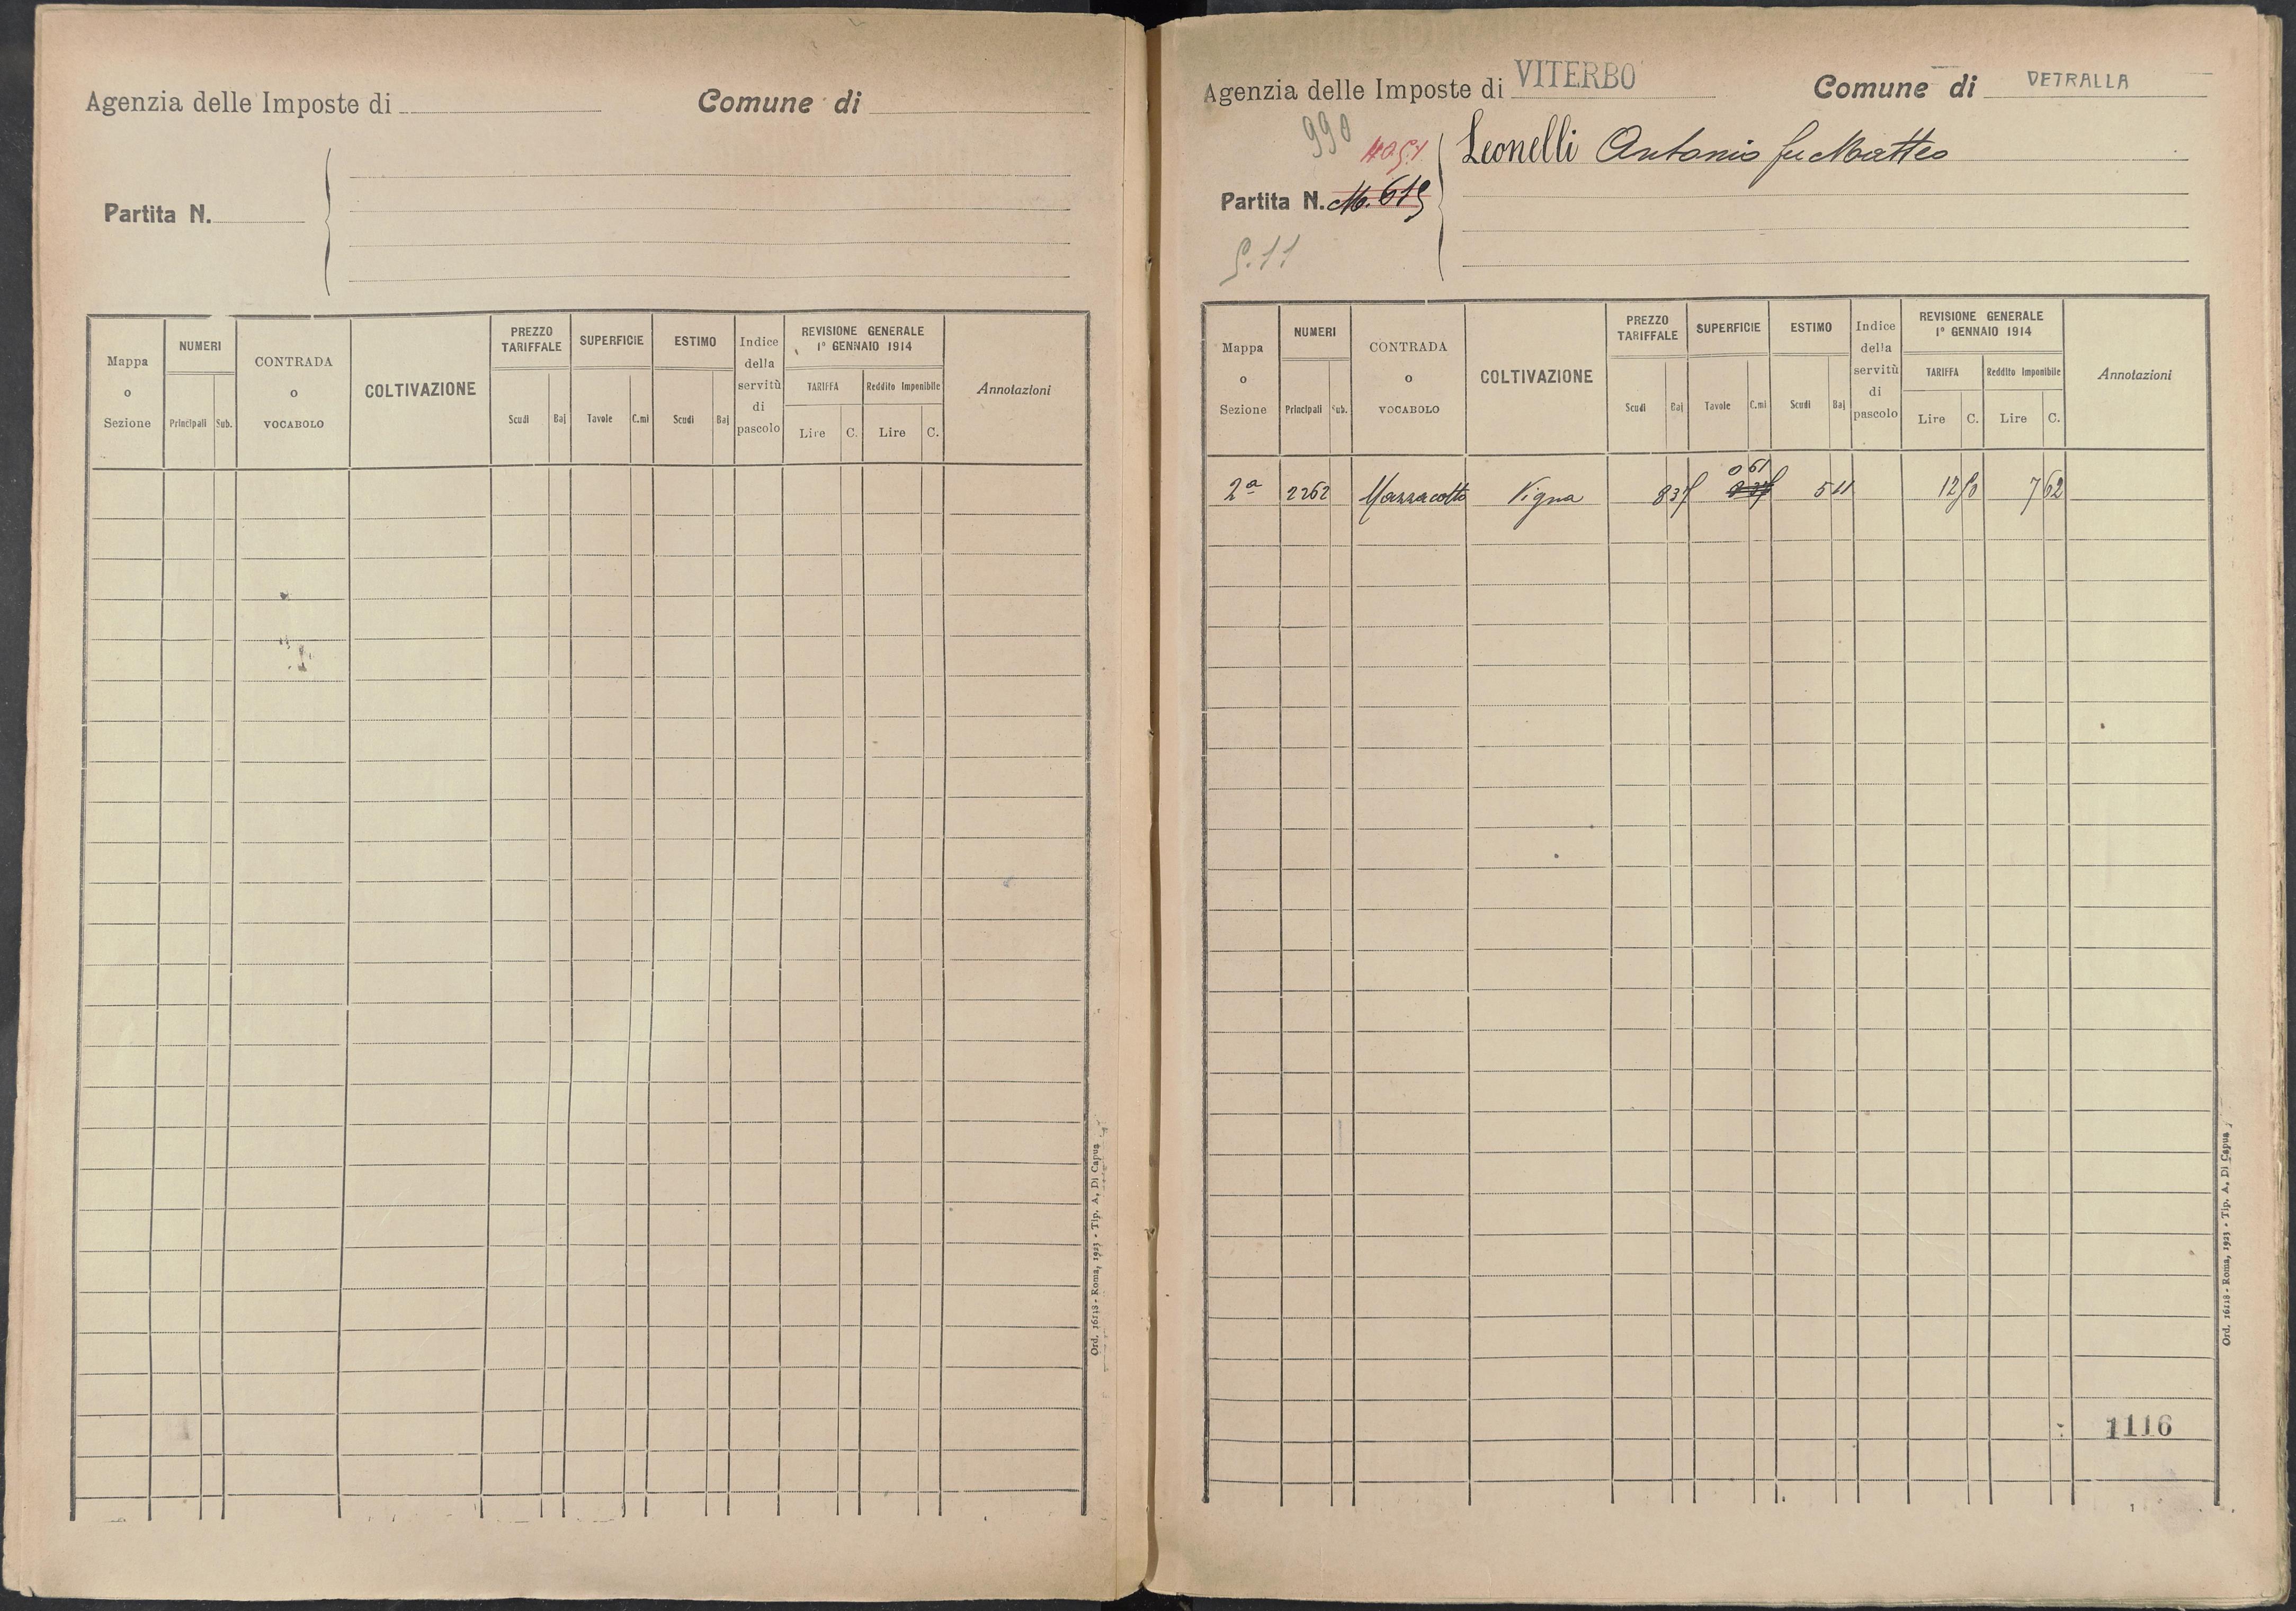 Agenzia delle Imposte di
Comune di
Partita N.
Mappa o Sezione
NUMERI
Principali
Sub.
CONTRADA o VOCABOLO
COLTIVAZIONE
PREZZO TARIFFALE
Scudi
Baj
SUPERFICIE
Tavole
C.mi
ESTIMO
Scudi
Baj
Indice della servitù di pascolo
REVISIONE GENERALE
1° GENNAIO 1914
TARIFFA
Lire
C.
Reddito Imponibile
Lire
C.
Annotazioni
Ord. 16118 - Roma, 1923 - Tip. A. Di Capua
Agenzia delle Imposte di VITERBO
Comune di VETRALLA
990
Leonelli Antonio fu Matteo
Partita N.
Mappa o Sezione
NUMERI
Principali
Sub.
CONTRADA o VOCABOLO
COLTIVAZIONE
PREZZO TARIFFALE
Scudi
Baj
SUPERFICIE
Tavole
C.mi
ESTIMO
Scudi
Baj
Indice della servitù di pascolo
REVISIONE GENERALE
1° GENNAIO 1914
TARIFFA
Lire
C.
Reddito Imponibile
Lire
C.
Annotazioni
0 61
2ª 2262 Mazzacotto Vigna 8 37 5 11 12 50 7 62
1116
Ord. 16118 - Roma, 1923 - Tip. A. Di Capua